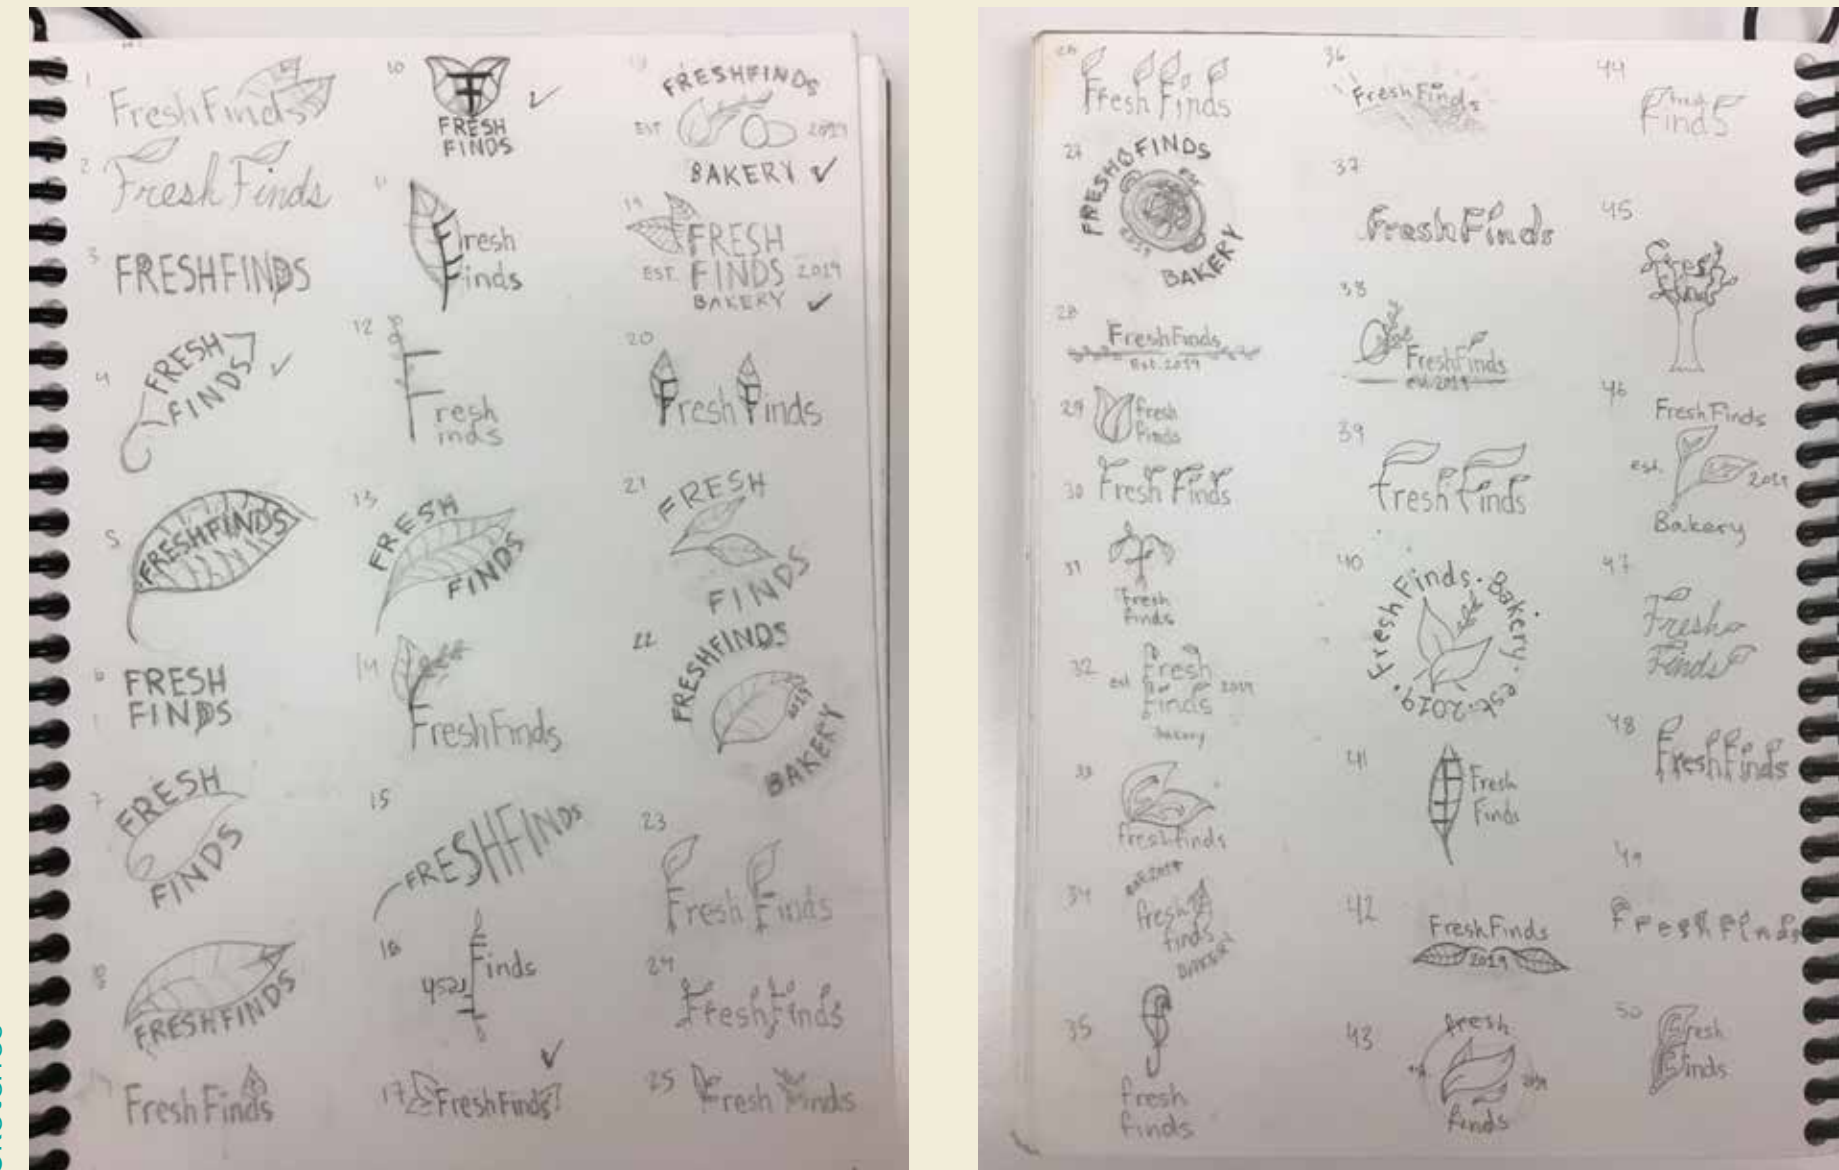 1
FreshFinds
2
Fresh Finds
3
FRESHFINDS
4
FRESH
FINDS
5
FRESHFINDS
6
FRESH
FINDS
7
FRESH
FINDS
8
FRESHFINDS
FreshFinds
10
F
FRESH
FINDS
11
Fresh
Finds
12
F
resh
inds
13
FRESH
FINDS
14
FreshFinds
15
FRESHFINDS
16
Finds
17
FreshFinds
FRESHFINDS
EST 2019
BAKERY
19
FRESH
EST. FINDS 2019
BAKERY
20
Fresh Finds
21
FRESH
FINDS
22
FRESHFINDS
2019
BAKERY
23
Fresh Finds
24
Fresh Finds
25
Fresh Finds
26
Fresh Finds
27
FRESH FINDS
EST
2019
BAKERY
28
FreshFinds
Est. 2019
29
fresh
finds
30
Fresh Finds
31
fresh
finds
32
Fresh
est 2019
Finds
Bakery
33
freshfinds
34
est. 2019
fresh
finds
BAKERY
35
fresh
finds
36
FreshFinds
37
FreshFinds
38
FreshFinds
est. 2019
39
Fresh Finds
40
FreshFinds. Bakery. est. 2019.
41
Fresh
Finds
42
FreshFinds
2019
43
fresh
2019
finds
44
fresh
Finds
45
Fresh
Finds
46
FreshFinds
est. 2019
Bakery
47
Fresh
Finds
48
FreshFinds
49
FreshFinds
50
Fresh
Finds